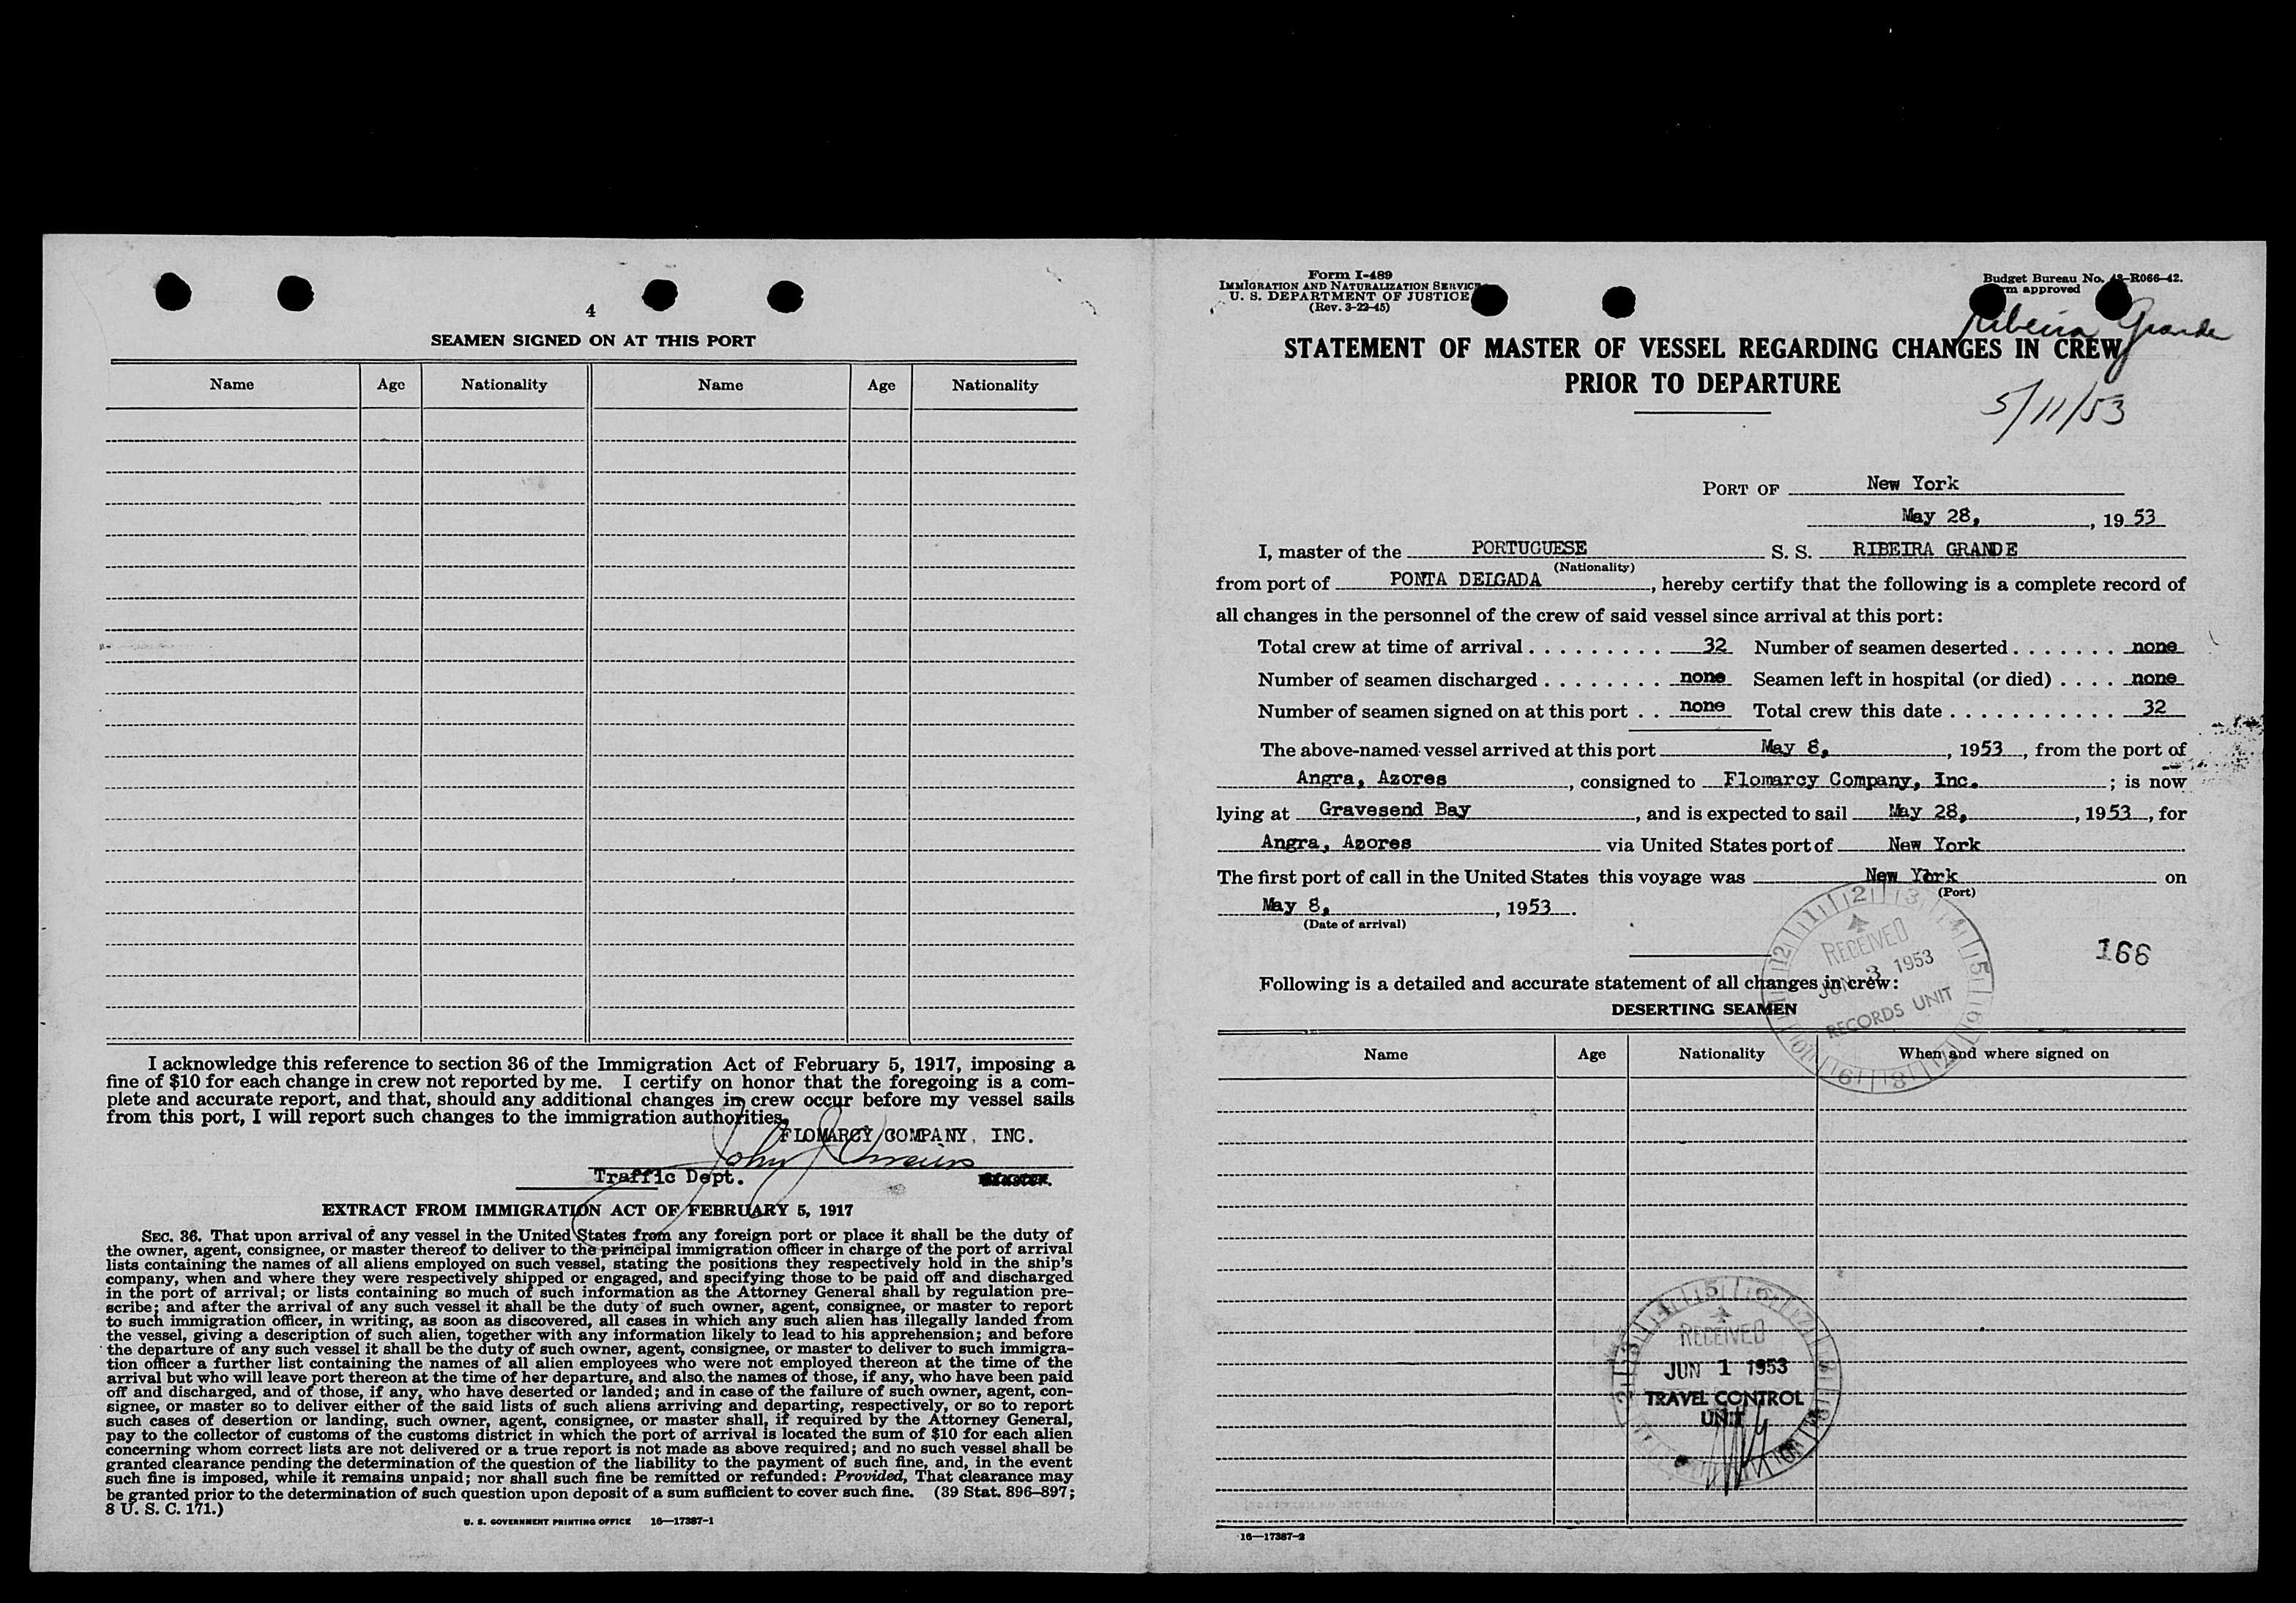 4
SEAMEN SIGNED ON AT THIS PORT
Name Age Nationality Name Age Nationality
I acknowledge this reference to section 36 of the Immigration Act of February 5, 1917, imposing a
fine of $10 for each change in crew not reported by me. I certify on honor that the foregoing is a com-
plete and accurate report, and that, should any additional changes in crew occur before my vessel sails
from this port, I will report such changes to the immigration authorities.
FLOMARCY COMPANY, INC.
John J
Traffic Dept.
EXTRACT FROM IMMIGRATION ACT OF FEBRUARY 5, 1917
SEC. 36. That upon arrival of any vessel in the United States from any foreign port or place it shall be the duty of
the owner, agent, consignee, or master thereof to deliver to the principal immigration officer in charge of the port of arrival
lists containing the names of all aliens employed on such vessel, stating the positions they respectively hold in the ship's
company, when and where they were respectively shipped or engaged, and specifying those to be paid off and discharged
in the port of arrival; or lists containing so much of such information as the Attorney General shall by regulation pre-
scribe; and after the arrival of any such vessel it shall be the duty of such owner, agent, consignee, or master to report
to such immigration officer, in writing, as soon as discovered, all cases in which any such alien has illegally landed from
the vessel, giving a description of such alien, together with any information likely to lead to his apprehension; and before
the departure of any such vessel it shall be the duty of such owner, agent, consignee, or master to deliver to such immigra-
tion officer a further list containing the names of all alien employees who were not employed thereon at the time of the
arrival but who will leave port thereon at the time of her departure, and also the names of those, if any, who have been paid
off and discharged, and of those, if any, who have deserted or landed; and in case of the failure of such owner, agent, con-
signee, or master so to deliver either of the said lists of such aliens arriving and departing, respectively, or so to report
such cases of desertion or landing, such owner, agent, consignee, or master shall, if required by the Attorney General,
pay to the collector of customs of the customs district in which the port of arrival is located the sum of $10 for each alien
concerning whom correct lists are not delivered or a true report is not made as above required; and no such vessel shall be
granted clearance pending the determination of the question of the liability to the payment of such fine, and, in the event
such fine is imposed, while it remains unpaid; nor shall such fine be remitted or refunded: Provided, That clearance may
be granted prior to the determination of such question upon deposit of a sum sufficient to cover such fine. (39 Stat. 896–897;
8 U. S. C. 171.)
U. S. GOVERNMENT PRINTING OFFICE 16—17387-1
Form I-489
IMMIGRATION AND NATURALIZATION SERVICE
U. S. DEPARTMENT OF JUSTICE
(Rev. 3-22-45)
Budget Bureau No. 43-R066-42.
approved
Ribeira Grande
STATEMENT OF MASTER OF VESSEL REGARDING CHANGES IN CREW
PRIOR TO DEPARTURE
5/11/53
PORT OF New York
May 28, , 19 53
I, master of the PORTUGUESE S. S. RIBEIRA GRANDE
(Nationality)
from port of PONTA DELGADA , hereby certify that the following is a complete record of
all changes in the personnel of the crew of said vessel since arrival at this port:
Total crew at time of arrival . . . . . . . . . 32 Number of seamen deserted . . . . . . . none
Number of seamen discharged . . . . . . . . none Seamen left in hospital (or died) . . . . none
Number of seamen signed on at this port . . none Total crew this date . . . . . . . . . . . 32
The above-named vessel arrived at this port May 8, , 1953 , from the port of
Angra, Azores , consigned to Flomarcy Company, Inc. ; is now
lying at Gravesend Bay , and is expected to sail May 28, , 1953 , for
Angra, Azores via United States port of New York
The first port of call in the United States this voyage was New York on
(Port)
May 8, , 1953 .
(Date of arrival)
RECEIVED
JUN 3 1953
RECORDS UNIT
166
Following is a detailed and accurate statement of all changes in crew:
DESERTING SEAMEN
Name Age Nationality When and where signed on
RECEIVED
JUN 1 1953
TRAVEL CONTROL
UNIT
16—17387-2